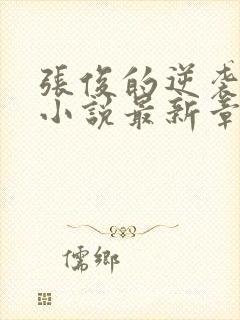 張俊的逆袭
小說最新章
儒鄉